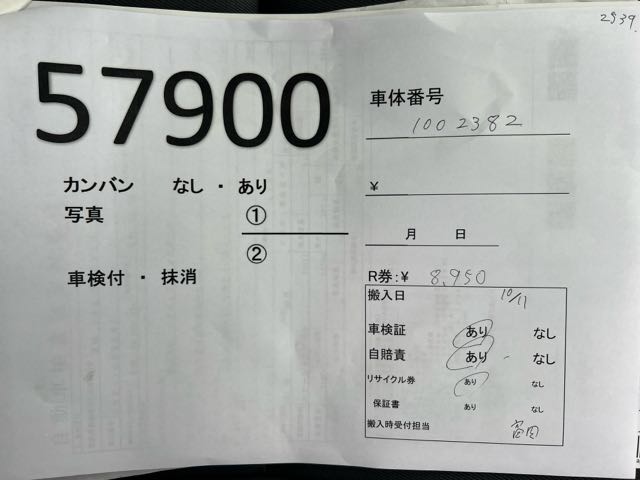 2939
57900
車体番号
1002382
カンバン なし ・ あり
¥
写真 ①
②
月 日
車検付 ・ 抹消
R券:¥ 8,950
搬入日 10/11
車検証 あり なし
自賠責 あり なし
リサイクル券 あり なし
保証書 あり なし
搬入時受付担当 富田